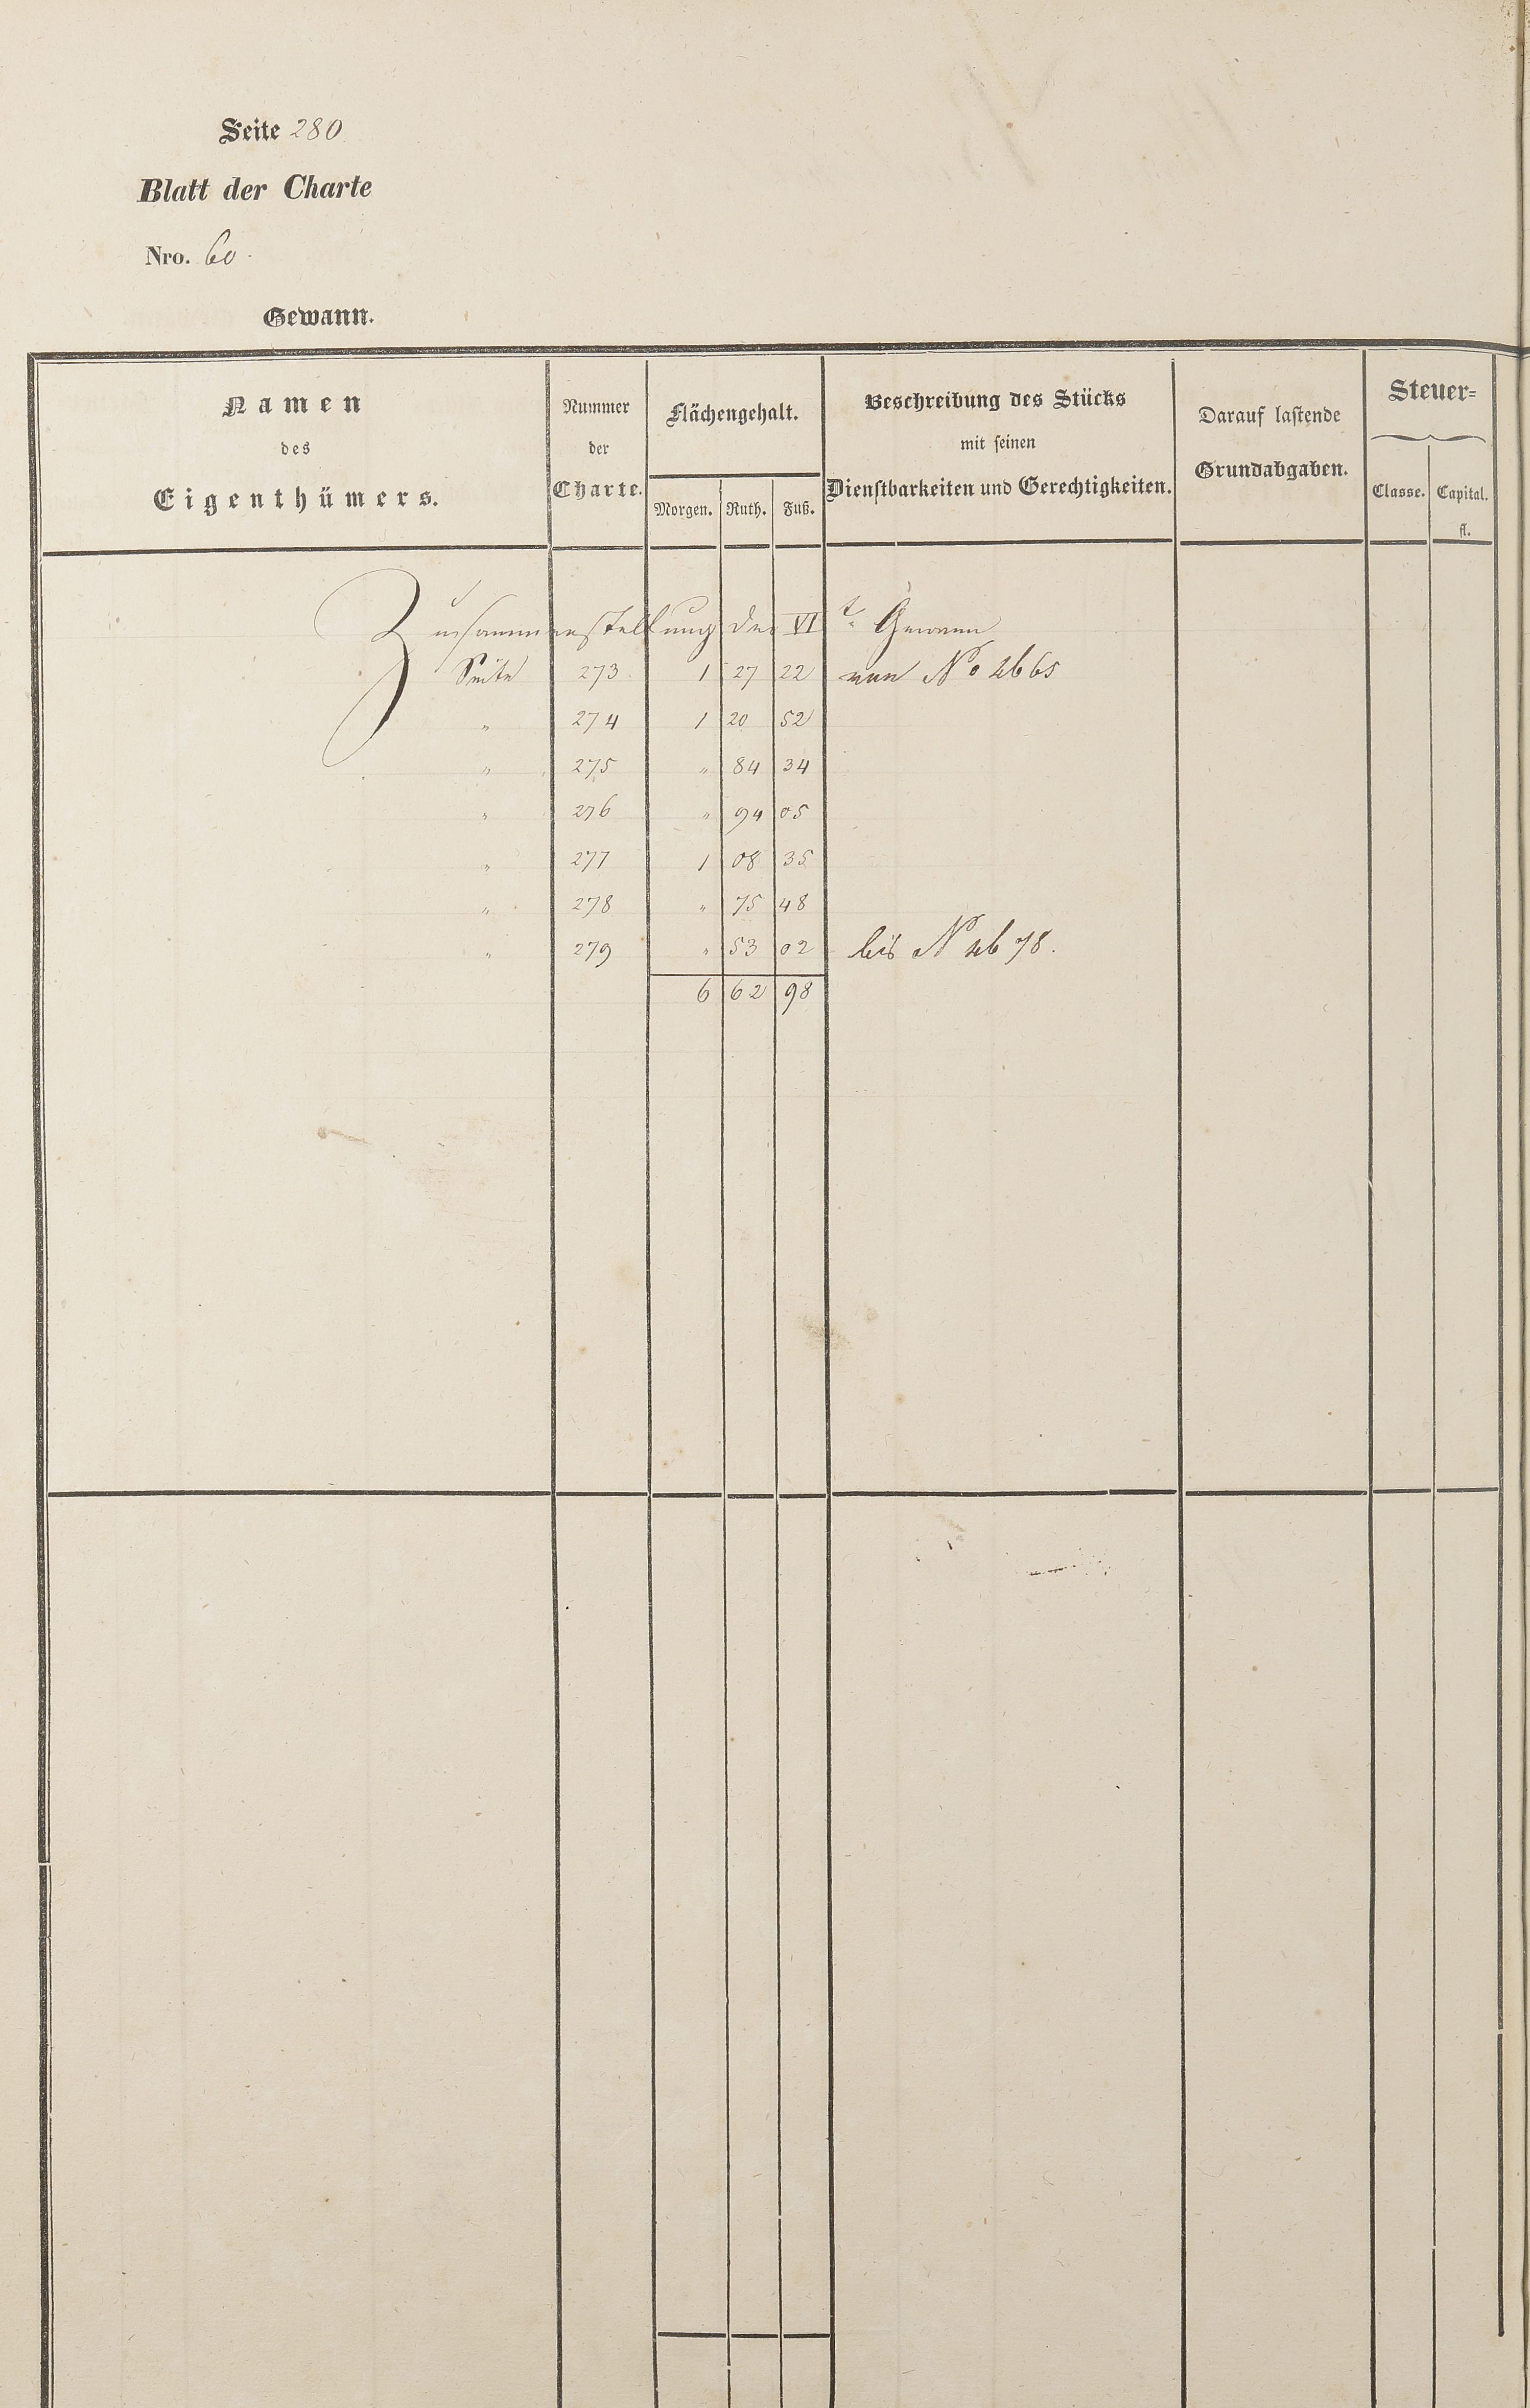 Seite 280
Blatt der Charte
Nro. 60.
Gewann.
Namen des Eigenthümers.
Nummer der Charte.
Flächengehalt.
Morgen. Ruth. Fuß.
Beschreibung des Stücks mit seinen Dienstbarkeiten und Gerechtigkeiten.
Darauf lastende Grundabgaben.
Steuer=
Classe. Capital. fl.
Zusammenstellung der VI t. Gewann
Seite 273 1 27 22 No 2665
" 274 1 20 52
" 275 " 84 34
" 276 " 94 05
" 277 1 08 35
" 278 " 75 48
" 279 " 53 02 bis N 2678.
6 62 98